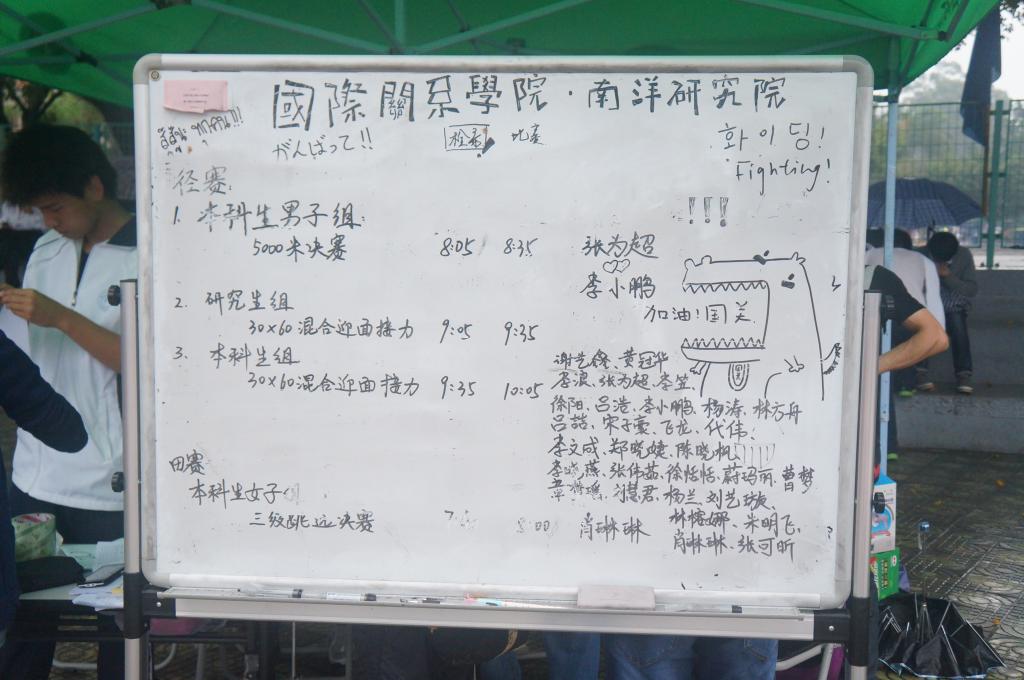 國際關系學院·南洋研究院
สู้สู้นะ ทุกคน!!!
がんばって!!
检录 比赛
화이팅!
Fighting!
径赛:
!!!
1. 本科生男子组:
5000米决赛 8:05 8:35 张为超
李小鹏
2. 研究生组
30×60混合迎面接力 9:05 9:35
加油!国关
3. 本科生组
30×60混合迎面接力 9:35 10:05
谢艺 黄冠华
李浪、张为超、李笠、
徐阳、吕浩、李小鹏、杨涛、林方舟
吕喆、宋子豪、飞龙、代伟、
李文成、郑晓婕、陈晓帆
李晓燕、张伟茹、徐恬恬、蔚玛丽、曹梦
刘慧君、杨兰、刘艺璇、
田赛
本科生女子
三级跳远决赛 8:00 肖琳琳
林榕娜、朱明飞、
肖琳琳、张可昕